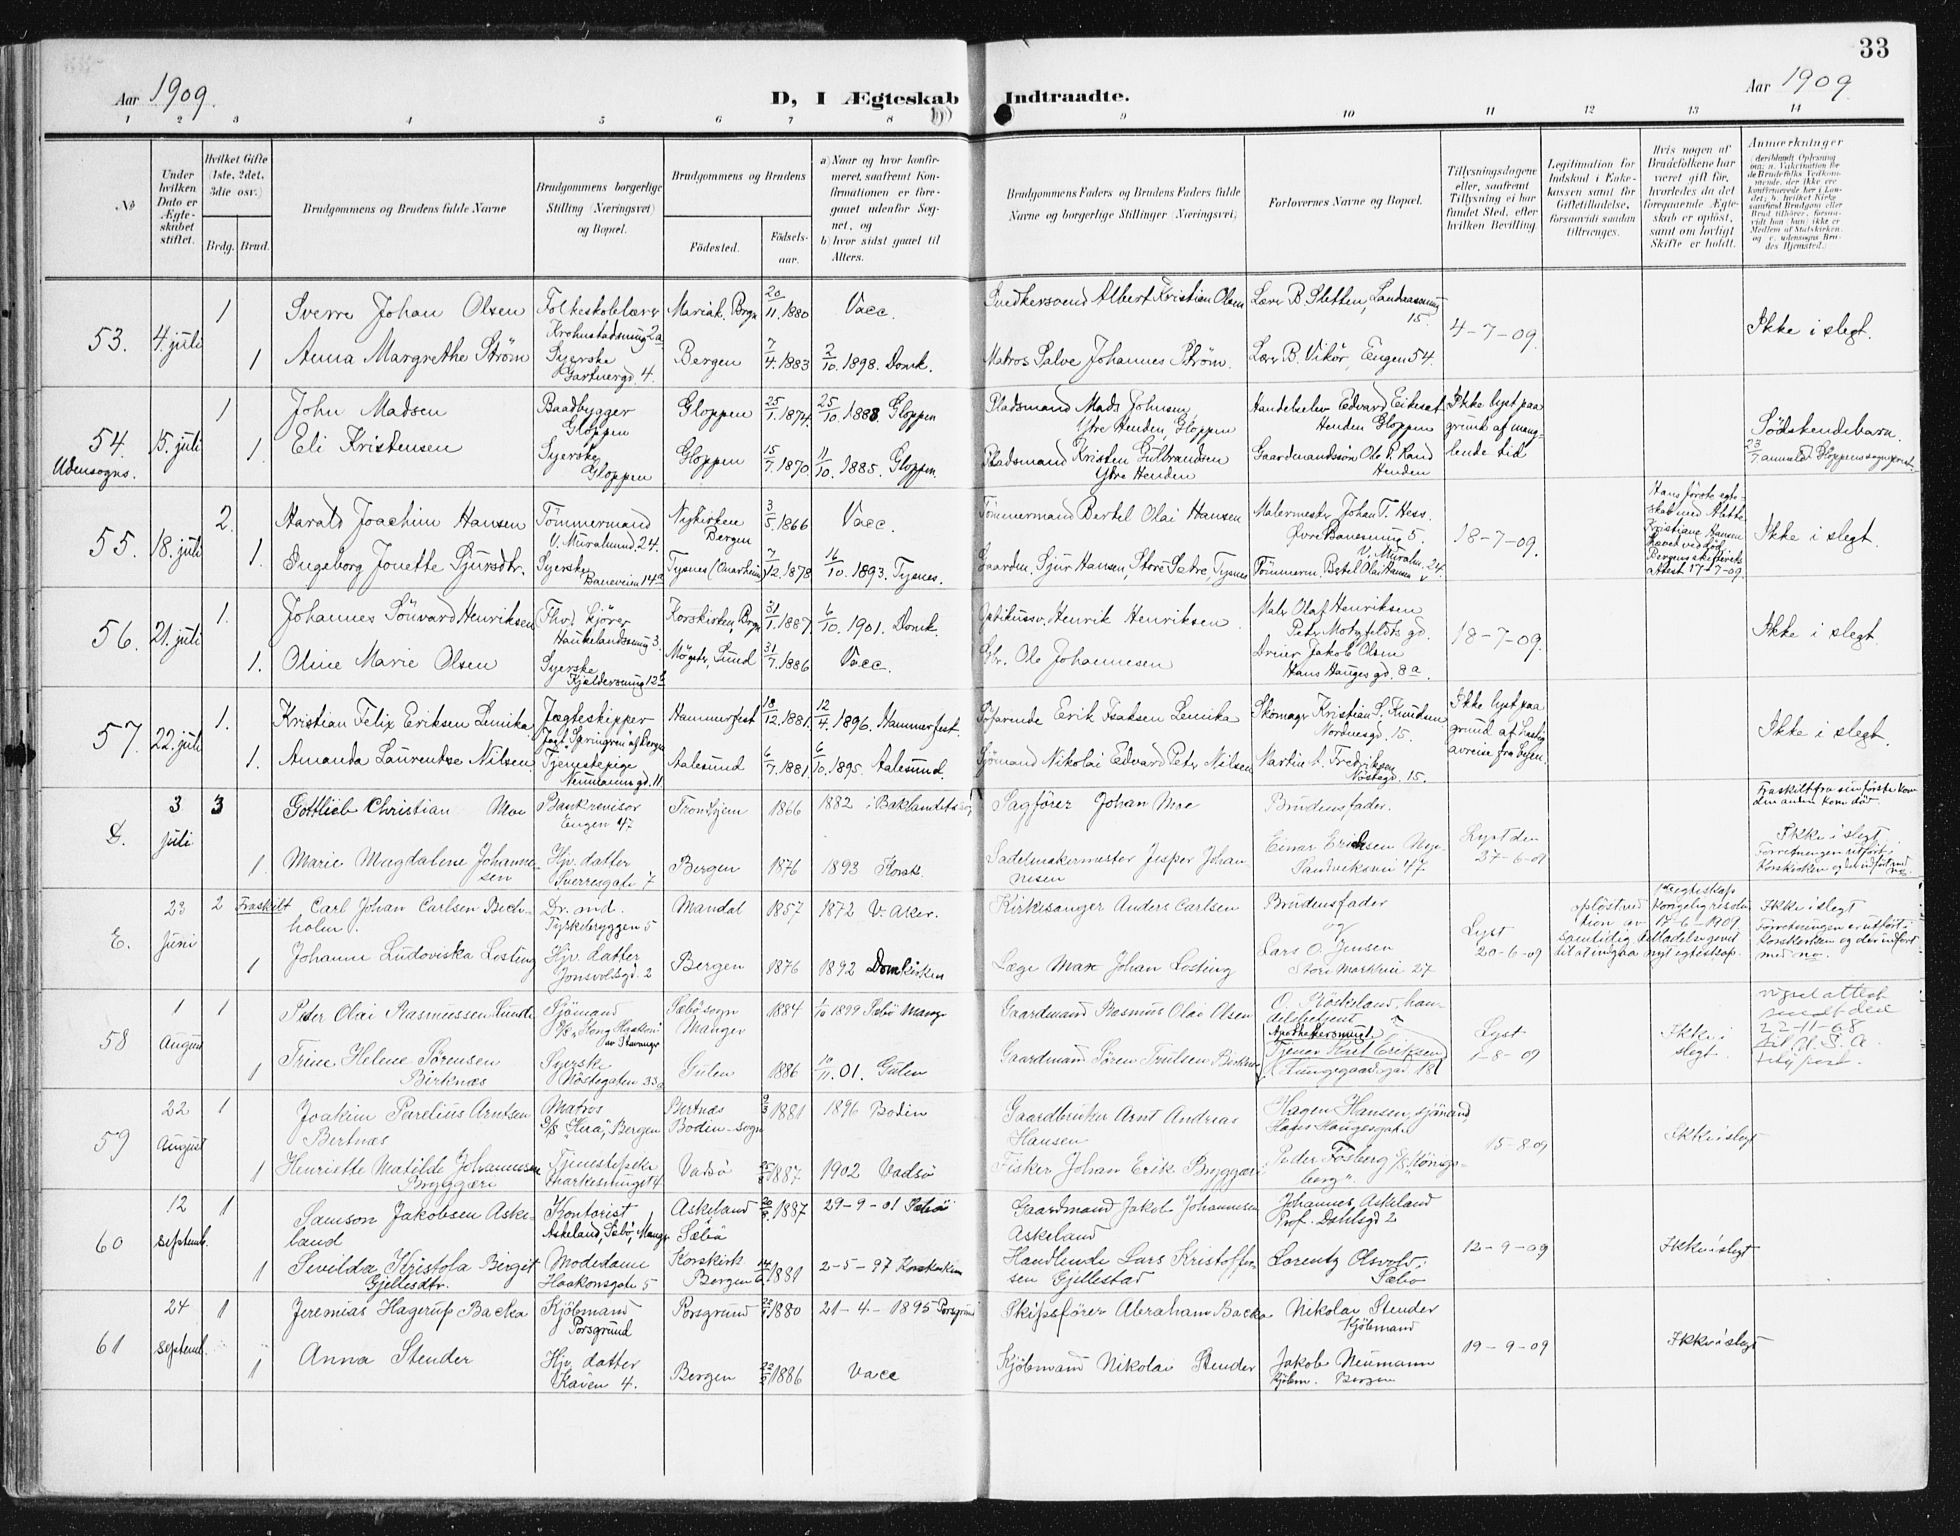 33
Aar 1909.
D, I Ægteskab Indtraadte.
Aar 1909.
1 2 3 4 5 6 7 8 9 10 11 12 13 14
No
Under hvilken Dato er Ægteskabet stiftet.
Hvilket Gifte (1ste, 2det, 3die osv.)
Brdg. Brud.
Brudgommens og Brudens fulde Navne
Brudgommens borgerlige Stilling (Næringsvei) og Bopæl.
Brudgommens og Brudens
Fødested.
Fødselsaar.
a) Naar og hvor konfirmeret, saafremt Konfirmationen er foregaaet udenfor Sognet, og
b) hvor sidst gaaet til Alters.
Brudgommens Faders og Brudens Faders fulde Navne og borgerlige Stillinger (Næringsvei)
Forlovernes Navne og Bopæl.
Tillysningsdagene eller, saafremt Tillysning ei har fundet Sted, efter hvilken Bevilling.
Legitimation for Indskud i Enkekassen samt for Giftetilladelse, forsaavidt saadan tiltrænges.
Hvis nogen af Brudefolkene har været gift før, hvorledes da det foregaaende Ægteskab er opløst, samt om lovligt Skifte er holdt.
Anmærkninger
53. 4. juli 1 Sverre Johan Olsen Folkeskolelærer Krohnstadsmug 2a Mariak. Brgn 20/11 1880 Vacc. Snedkersvend Albert Kristian Olsen Lærer B. Sletten, Landaasmug 15. 4-7-09. Ikke i slegt.
1 Anna Margrethe Strøm Syerske Gartnergd. 4. Bergen 7/4 1883 2/10. 1898. Domk. Matros Salve Johannes Strøm. Lærer B. Vikør, Engen 54.
54. Udensogns. 15. juli 1 John Madsen Baadbygger Gloppen Gloppen 25/1. 1874. 25/10. 1888 Gloppen Pladsmand Mads Johnsen, Ytre Henden, Gloppen Handelselev Edvard Eikeset Henden Gloppen Ikke lyst paa grund af manglende tid Sødskendebarn.
1. Eli Kristensen Syerske Gloppen Gloppen 15/7. 1870 11/10. 1885. Gloppen. Pladsmand Kristen Gulbrandsen Ytre Henden Gaardmandssøn Ole P. Rand Henden 23/7 anmeldt Gloppens sogneprest.
55. 18. juli 2. Harald Joachim Hansen Tömmermand V. Muralmd. 24. Nykirken Bergen 3/5. 1866 Vacc. Tömmermand Bertel Olai Hansen Malermester Johan T. Hess. Øvre Banesmug 5. 18-7-09. Hans første egteskab med Alette Kristiane Hansen hævet ved død Bergens skifterets attest 17-7-09. Ikke i slegt.
1. Ingeborg Jonette Sjursdtr. Syerske Baneveien 14a Tysnes (Onarheim) 7/12. 1878 16/10. 1893. Tysnes. Gaardm. Sjur Hansen, Store Sætre, Tysnes Tömmerm. Bertel Olai Hansen V. Muralm. 24.
56. 21. juli 1. Johannes Sönvard Henriksen Haukelandsmug 3. Korskirken, Brgn 31/1. 1887. 6/10. 1901. Domk. Henrik Henriksen. Maler Olaf Henriksen Peter Motzfeldts gd. 18-7-09. Ikke i slegt.
1. Oline Marie Olsen Syerske Kjeldersmug 12b Møgster, Sund 31/7. 1886 Vacc. Gbr. Ole Johannesen Dreier Jakob Olsen Hans Hauges gd. 8a.
57. 22. juli 1. Kristian Felix Eriksen Lemika Jægteskipper Jagt "Springeren" af Bergen Hammerfest 18/12. 1881. 12/4. 1896. Hammerfest. Söfarende Erik Isaksen Lemika Skomager Kristian S. Knudsen Nordnesgd. 15. Ikke lyst paa grund af hastig avreise fra byen. Ikke i slegt.
1. Amanda Laurentse Nilsen. Tjenestepige Neumanns gd. 11 Aalesund 6/7. 1881. 6/10. 1895. Aalesund. Sjömand Nikolai Edvard Peter Nilsen Martin A. Fredriksen Nöstegd. 15.
D. 3 juli 3 Gottlieb Christian Moe Bankrevisor Engen 47 Trondhjem 1866 1882 i Baklandets Sagfører Johan Moe Brudens fader. Lyst den 27-6-09 Fraskilt fra sin første kone den anden kone død.
1 Marie Magdalene Johannesen Hjv. datter Sverresgate 7 Bergen 1876 1893 Korsk. Sadelmakermester Jesper Johannesen Einar Sandviksvei 47 Ikke i slegt. Forretningen utført i Korskirken og der indført med no.
E. 23 Juni 2 Fraskilt Carl Johan Carlsen Bichholm. Dr. med. Tyskebryggen 5 Mandal 1857 1872 V. Aker. Kirkesanger Anders Carlsen Brudens fader og Lyst 20-6-09 opløst ved kongelig resolution av 17-6-1909 samtidig tilladelse givet til at indgaa nyt egteskap. Ikke i slegt
1 Johanne Ludoviska Losting Hjv. datter Jonsvolsgd. 2 Bergen 1876 1892 Domkirken Læge Max Johan Losting Lars O. Jensen Store Markvei 27 Forretningen er utført i Korskirken og der indført med no.
58 1 August 1 Peder Olai Rasmussen Lunde Sjömand D/S "Kong Haakon" av Stavanger Sæbö sogn Manger 1884 1/10 1899 Sæbö Manger Gaardmand Rasmus Olai Olsen O. Röskeland, handelsbetjent Apothekersmuget. Lyst 1-8-09 Ikke i slegt. vigsel attest sendt den 22-11-08
1 Trine Helene Sørensen Birknæs Syerske Nöstegaten 33a Gulen 1886 10/11. 01. Gulen Gaardmand Sören Trulsen Birknæs Tjener Karl Eriksen Lungegaardsgd 18
59 22 August 1 Joakim Parelius Arntsen Bertnæs Matros D/S "Hera", Bergen Bertnæs Bodin-sogn 9/3 1881 1896 Bodin Gaardbruker Arnt Andreas Hansen Hagen Hansen, sjömand, Hans Haugesgate 15-8-09 Ikke i slegt
1 Henriette Matilde Johannesen Bryggæri Tjenestepike Markesmuget 4 Vadsö 25/8 1887 1902 Vadsö Fisker Johan Erik Bryggæri Peder Fosberg D/S "Königsberg".
60 12 septemb. 1 Samson Jakobsen Askeland Kontorist Askeland, Sæbö, Manger Askeland Sæbö 20/9. 1887 29-9-01 Sæbö Gaardmand Jakob Johannesen Askeland Johannes Askeland Prof. Dahlsgd 2 12-9-09 Ikke i slegt
1 Sevilda Kristola Birgit Gjellesdtr. Modedame Haakonsgate 5 Korskirk. Bergen 14/6 1881 2-5-97 Korskirken Handlende Lars Kristoffersen Gjellestad Lorentz Olsvold, Sæbö
61 24 septemb. 1 Jeremias Hagerup Backa Kjöbmand Porsgrund Porsgrund 22/1 1880 21-4-1895 Porsgrund Skipsfører Abraham Backa Nikolai Stender Kjöbmand 19-9-09 Ikke i slegt
1 Anna Stender Hjv. datter Kaien 4. Bergen 22/2 1886 Vacc Kjöbmand Nikolai Stender Jakob Neumann Kjöbm. Bergen